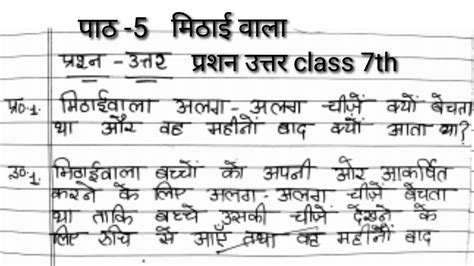 पाठ -5 मिठाई वाला
प्रश्न - उत्तर प्रशन उत्तर class 7th
प्र०-1. मिठाईवाला अलग - अलग चीज़ें क्यों बेचता
था और वह महीनों बाद क्यों आता था?
उ०-1. मिठाईवाला बच्चों को अपनी ओर आकर्षित
करने के लिए अलग - अलग चीज़ें बेचता
था ताकि बच्चे उसकी चीजें देखने के
लिए रुचि से आएँ तथा वह महीनों बाद